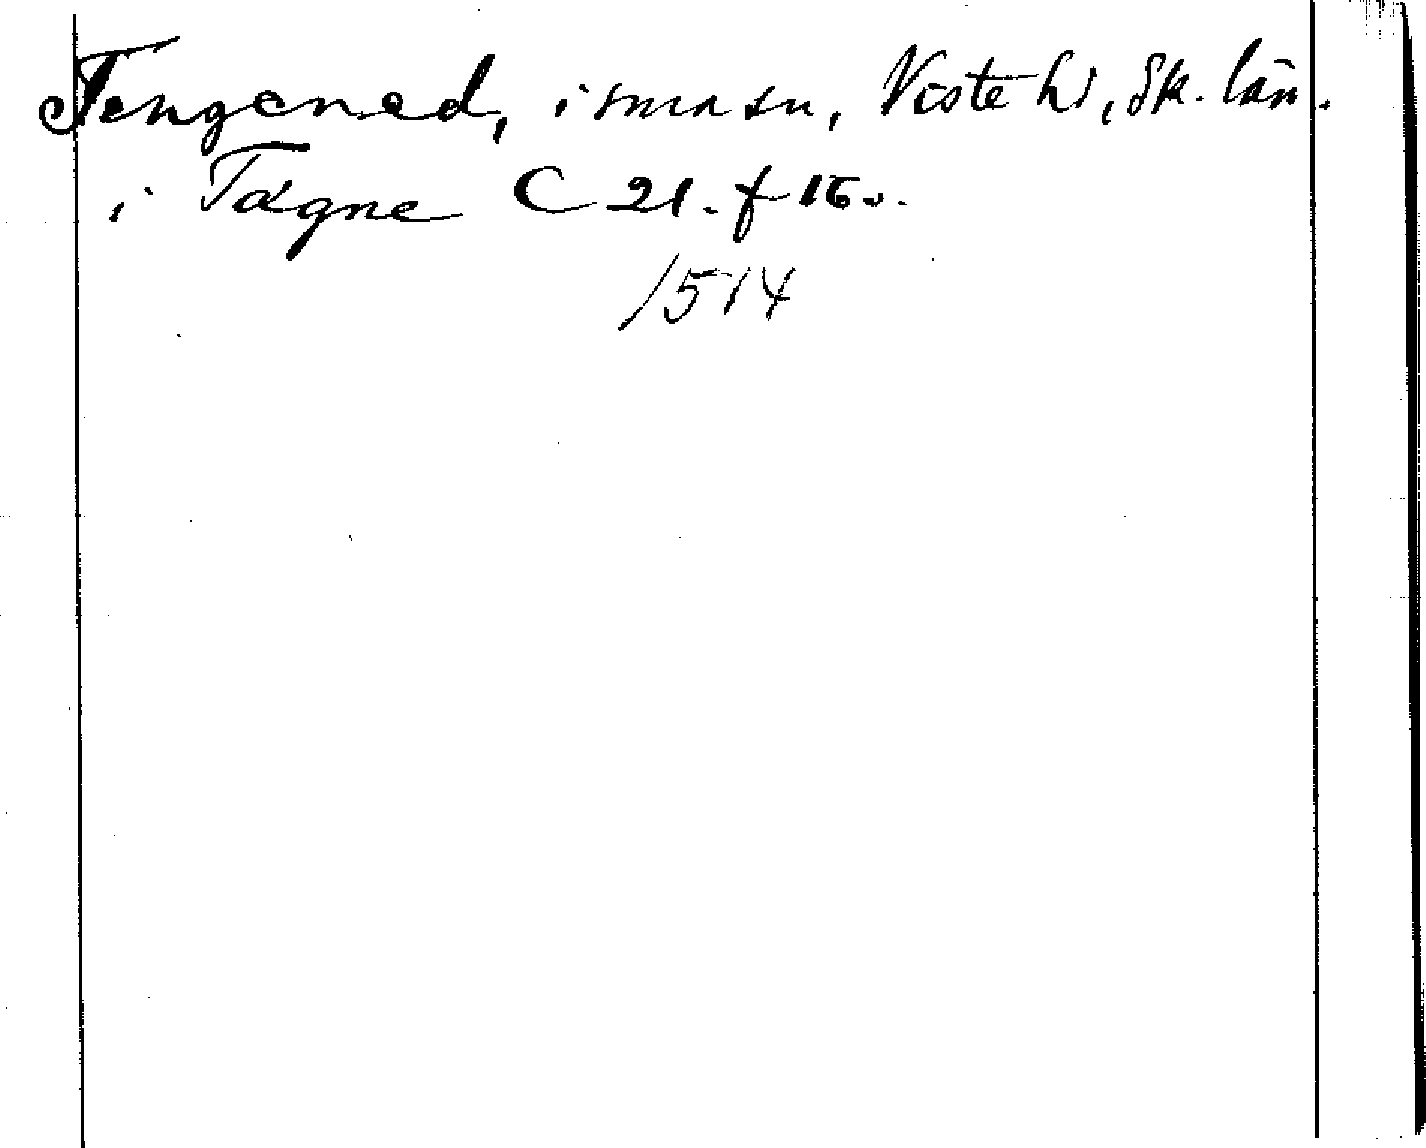 Tengened, i smn sn, Viste hd, Sk. län.
i Tægne C 21. f 16 v.
1514